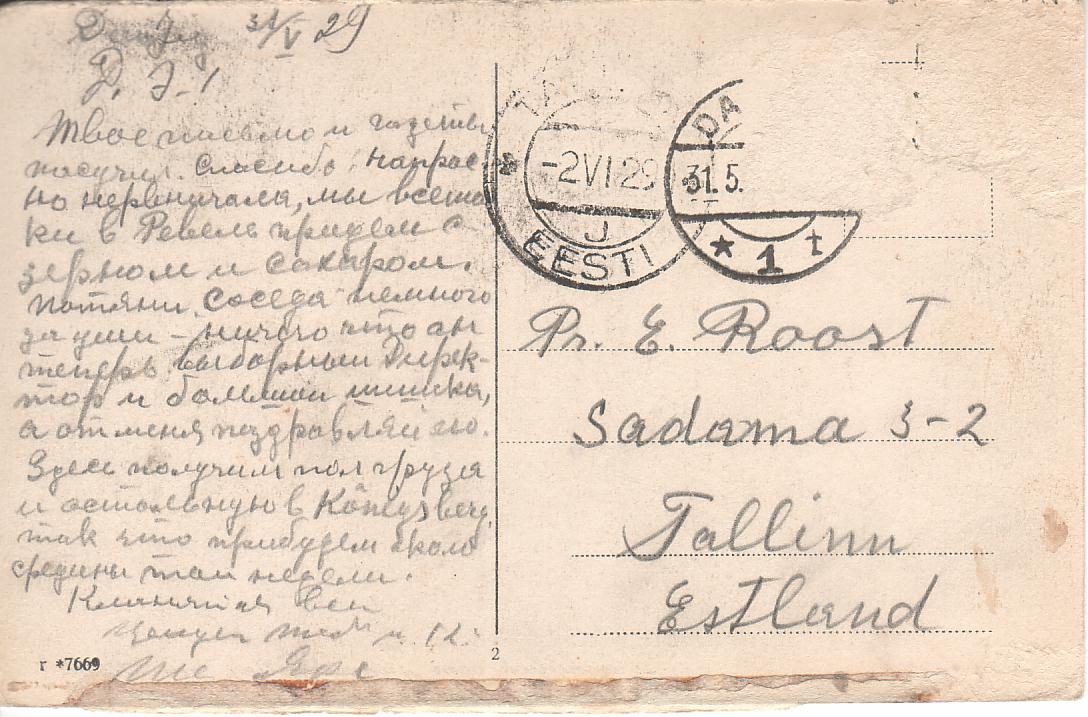 Danzig 31/V 29
Д. Э.!
Твое письмо и газеты
получил. Спасибо! Напрас-
но нервничала, мы всета
ки в Ревель придем с
зерном и сахаром.
Потяни соседа немного
за уши – ничего что он
теперь выборный Дирек-
тор и большая шишка,
а от меня поздравляй его.
Здесь получим пол груза
и остальную в Königsberg,
так что прибудем около
средины той недели.
Кланяйся всем
r *7669
2
TA
-2 VI 29
J
EESTI
DA
31.5.
* 1 t
Pr. E. Roost
Sadama 3-2
Tallinn
Estland